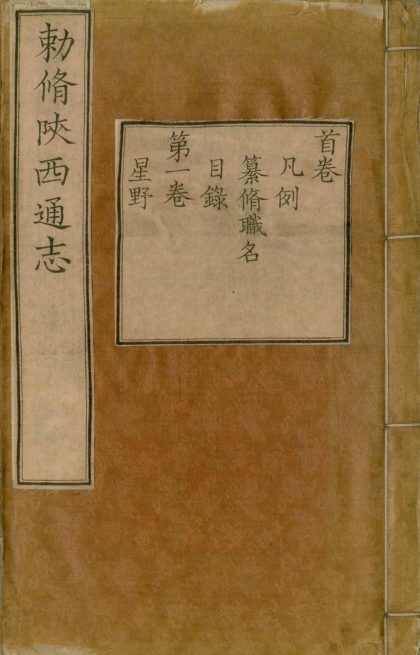 勅脩陜西通志
首卷
凡例
纂脩職名
目錄
第一卷
星野